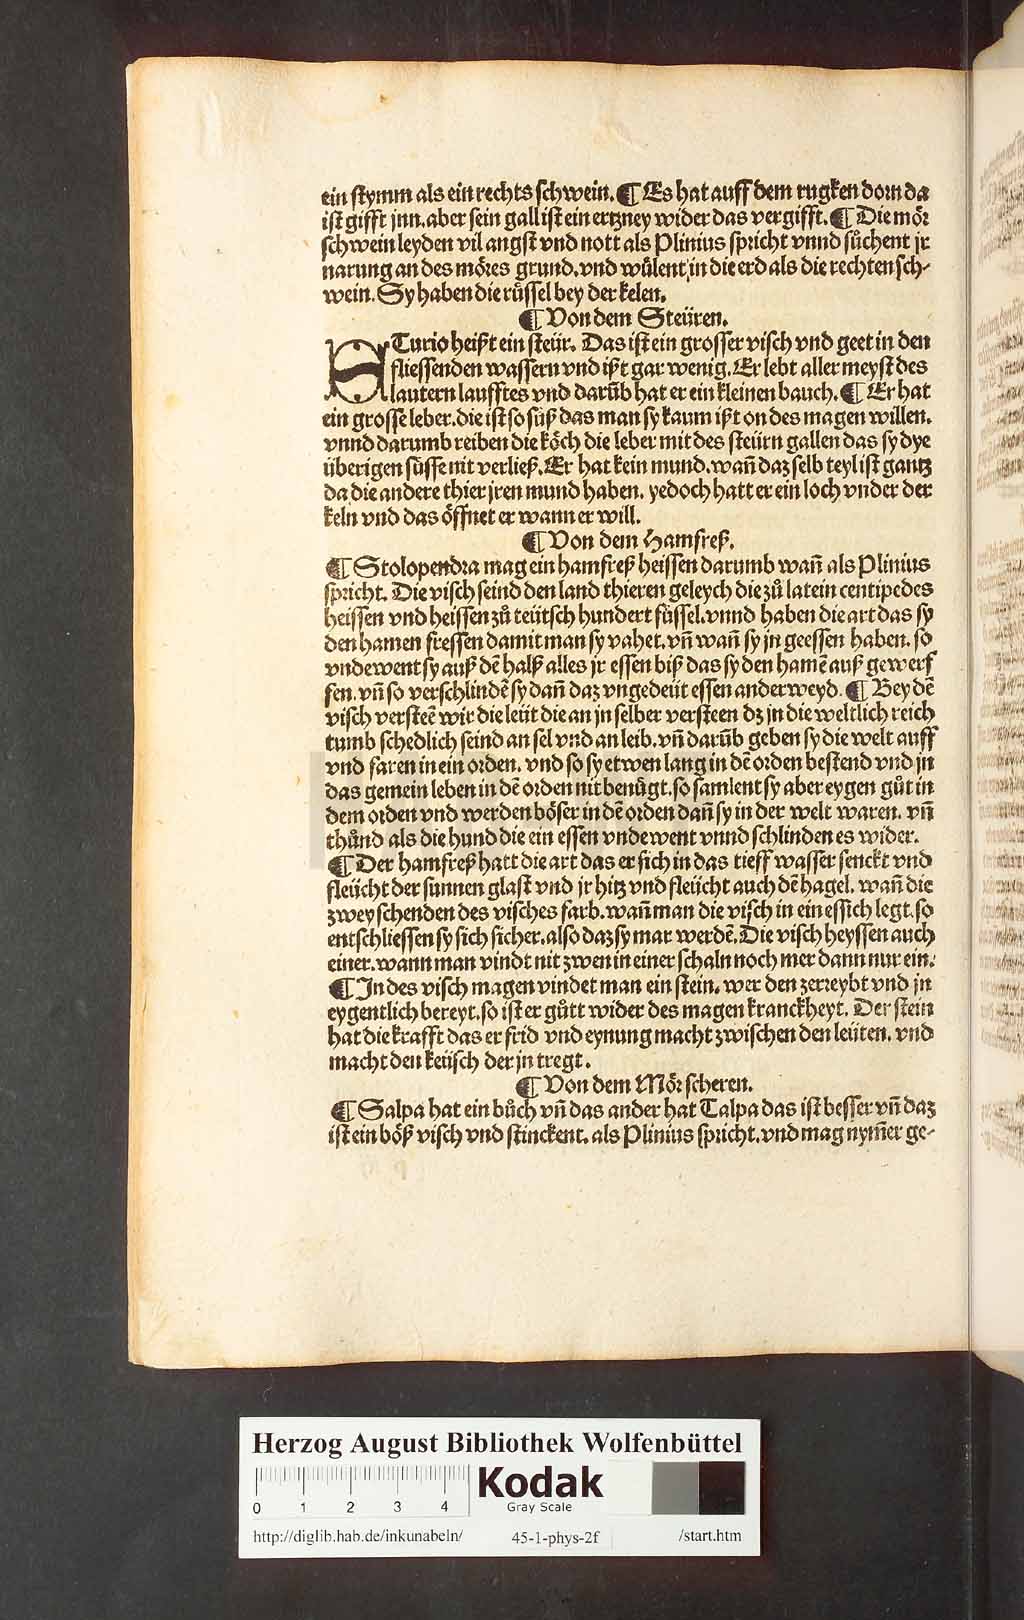 ein stymm als ein rechts schwein. ¶ Es hat auff dem rugken dorn da
ist gifft jnn. aber sein gall ist ein ertzney wider das vergifft. ¶ Die mör
schwein leyden vil angst vnd nott als Plinius spricht vnnd sůchent jr
narung an des möres grund. vnd wůlent in die erd als die rechten sch⸗
wein. Sy haben die růssel bey der kelen.
¶ Von dem Steüren.
STurio heißt ein steür. Das ist ein grosser visch vnd geet in den
fliessenden wassern vnd ißt gar wenig. Er lebt aller meyst des
lautern laufftes vnd darūb hat er ein kleinen bauch. ¶ Er hat
ein grosse leber. die ist so süß das man sy kaum ißt on des magen willen.
vnnd darumb reiben die köch die leber mit des steürn gallen das sy dye
überigen süsse nit verließ. Er hat kein mund. wan̄ daz selb teyl ist gantz
da die andere thier jren mund haben. yedoch hatt er ein loch vnder der
keln vnd das öffnet er wann er will.
¶ Von dem Hamfreß.
¶ Stolopendra mag ein hamfreß heissen darumb wan̄ als Plinius
spricht. Die visch seind den land thieren geleych die zů latein centipedes
heissen vnd heissen zů teütsch hundert füssel. vnnd haben die art das sy
den hamen fressen damit man sy vahet. vn̄ wan̄ sy jn geessen haben. so
vndewent sy auß dē halß alles jr essen biß das sy den hamē auß gewerf
fen. vn̄ so verschlindē sy dan̄ daz vngedeüt essen anderweyd. ¶ Bey dē
visch versteē wir die leüt die an jn selber versteen dz jn die weltlich reich
tumb schedlich seind an sel vnd an leib. vn̄ darūb geben sy die welt auff
vnd faren in ein orden. vnd so sy etwen lang in dē orden bestend vnd jn
das gemein leben in dē orden nit benůgt. so samlent sy aber eygen gůt in
dem orden vnd werden böser in dē orden dan̄ sy in der welt waren. vn̄
thůnd als die hund die ein essen vndewent vnnd schlinden es wider.
¶ Der hamfreß hatt die art das er sich in das tieff wasser senckt vnd
fleücht der sunnen glast vnd jr hitz vnd fleücht auch dē hagel. wan̄ die
zwey schenden des visches farb. wan̄ man die visch in ein essich legt. so
entschliessen sy sich sicher. also daz sy mar werdē. Die visch heyssen auch
einer. wann man vindt nit zwen in einer schaln noch mer dann nur ein.
¶ In des visch magen vindet man ein stein. wer den zerreybt vnd jn
eygentlich bereyt. so ist er gůtt wider des magen kranckheyt. Der stein
hat die krafft das er frid vnd eynung macht zwischen den leüten. vnd
macht den keüsch der jn tregt.
¶ Von dem Mör scheren.
¶ Salpa hat ein bůch vn̄ das ander hat Talpa das ist besser vn̄ daz
ist ein böß visch vnd stinckent. als Plinius spricht. vnd mag nym̄er ge⸗
Herzog August Bibliothek Wolfenbüttel
0 1 2 3 4
Kodak
Gray Scale
http://diglib.hab.de/inkunabeln/ 45-1-phys-2f /start.htm